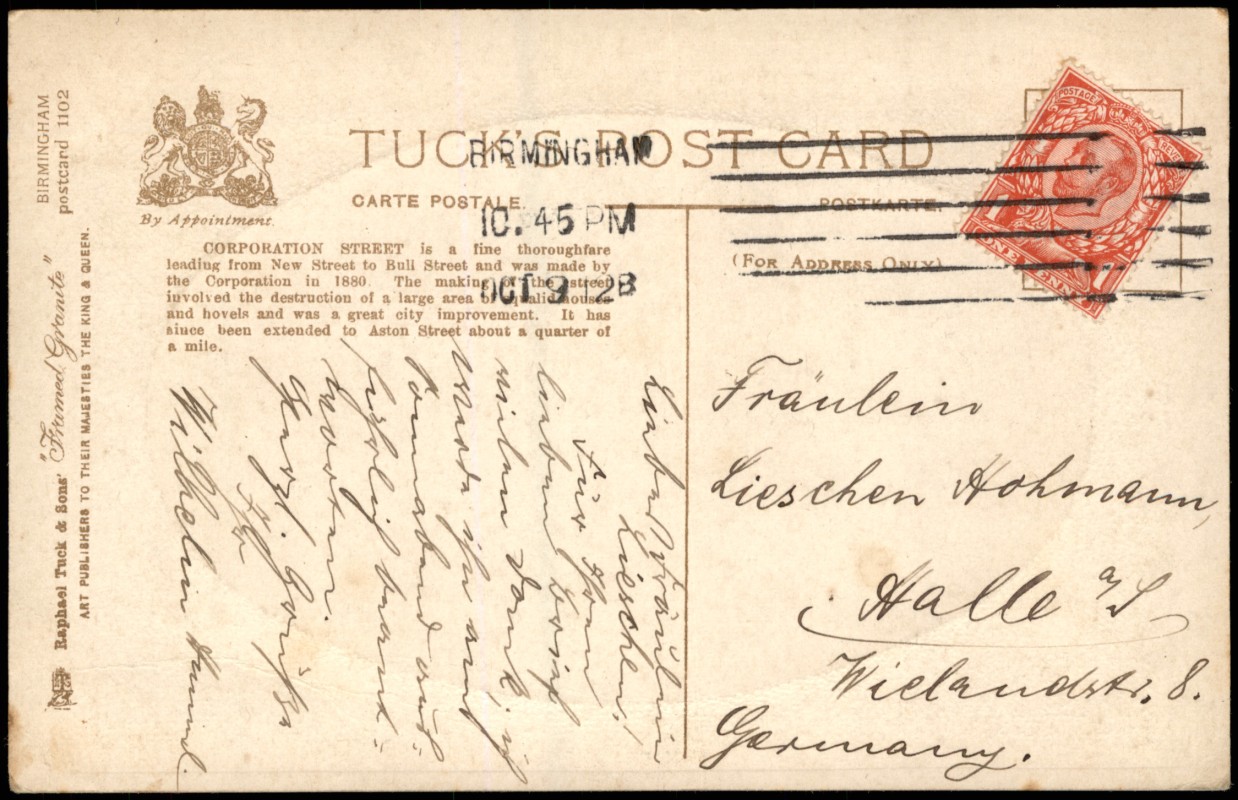 BIRMINGHAM
postcard 1102
Raphael Tuck & Sons' "Framed Granite"
ART PUBLISHERS TO THEIR MAJESTIES THE KING & QUEEN.
By Appointment.
TUCK'S POST CARD
CARTE POSTALE.
POSTKARTE.
(FOR ADDRESS ONLY)
BIRMINGHAM
10.45 PM
OCT 9 28
POSTAGE
REVENUE
1 1
ONE PENNY
CORPORATION STREET is a fine thoroughfare
leading from New Street to Bull Street and was made by
the Corporation in 1880. The making of the street
involved the destruction of a large area of squalid houses
and hovels and was a great city improvement. It has
since been extended to Aston Street about a quarter of
a mile.
Liebes Fräulein
Lieschen!
Für Ihren
lieben Brief
vielen Dank, ich
werde ihn am
Sonnabend
beant-
worten.
Herzl. Grüße
Ihr
Wilhelm
Fräulein
Lieschen Hohmann,
Halle a/S
Wielandstr. 8.
Germany.